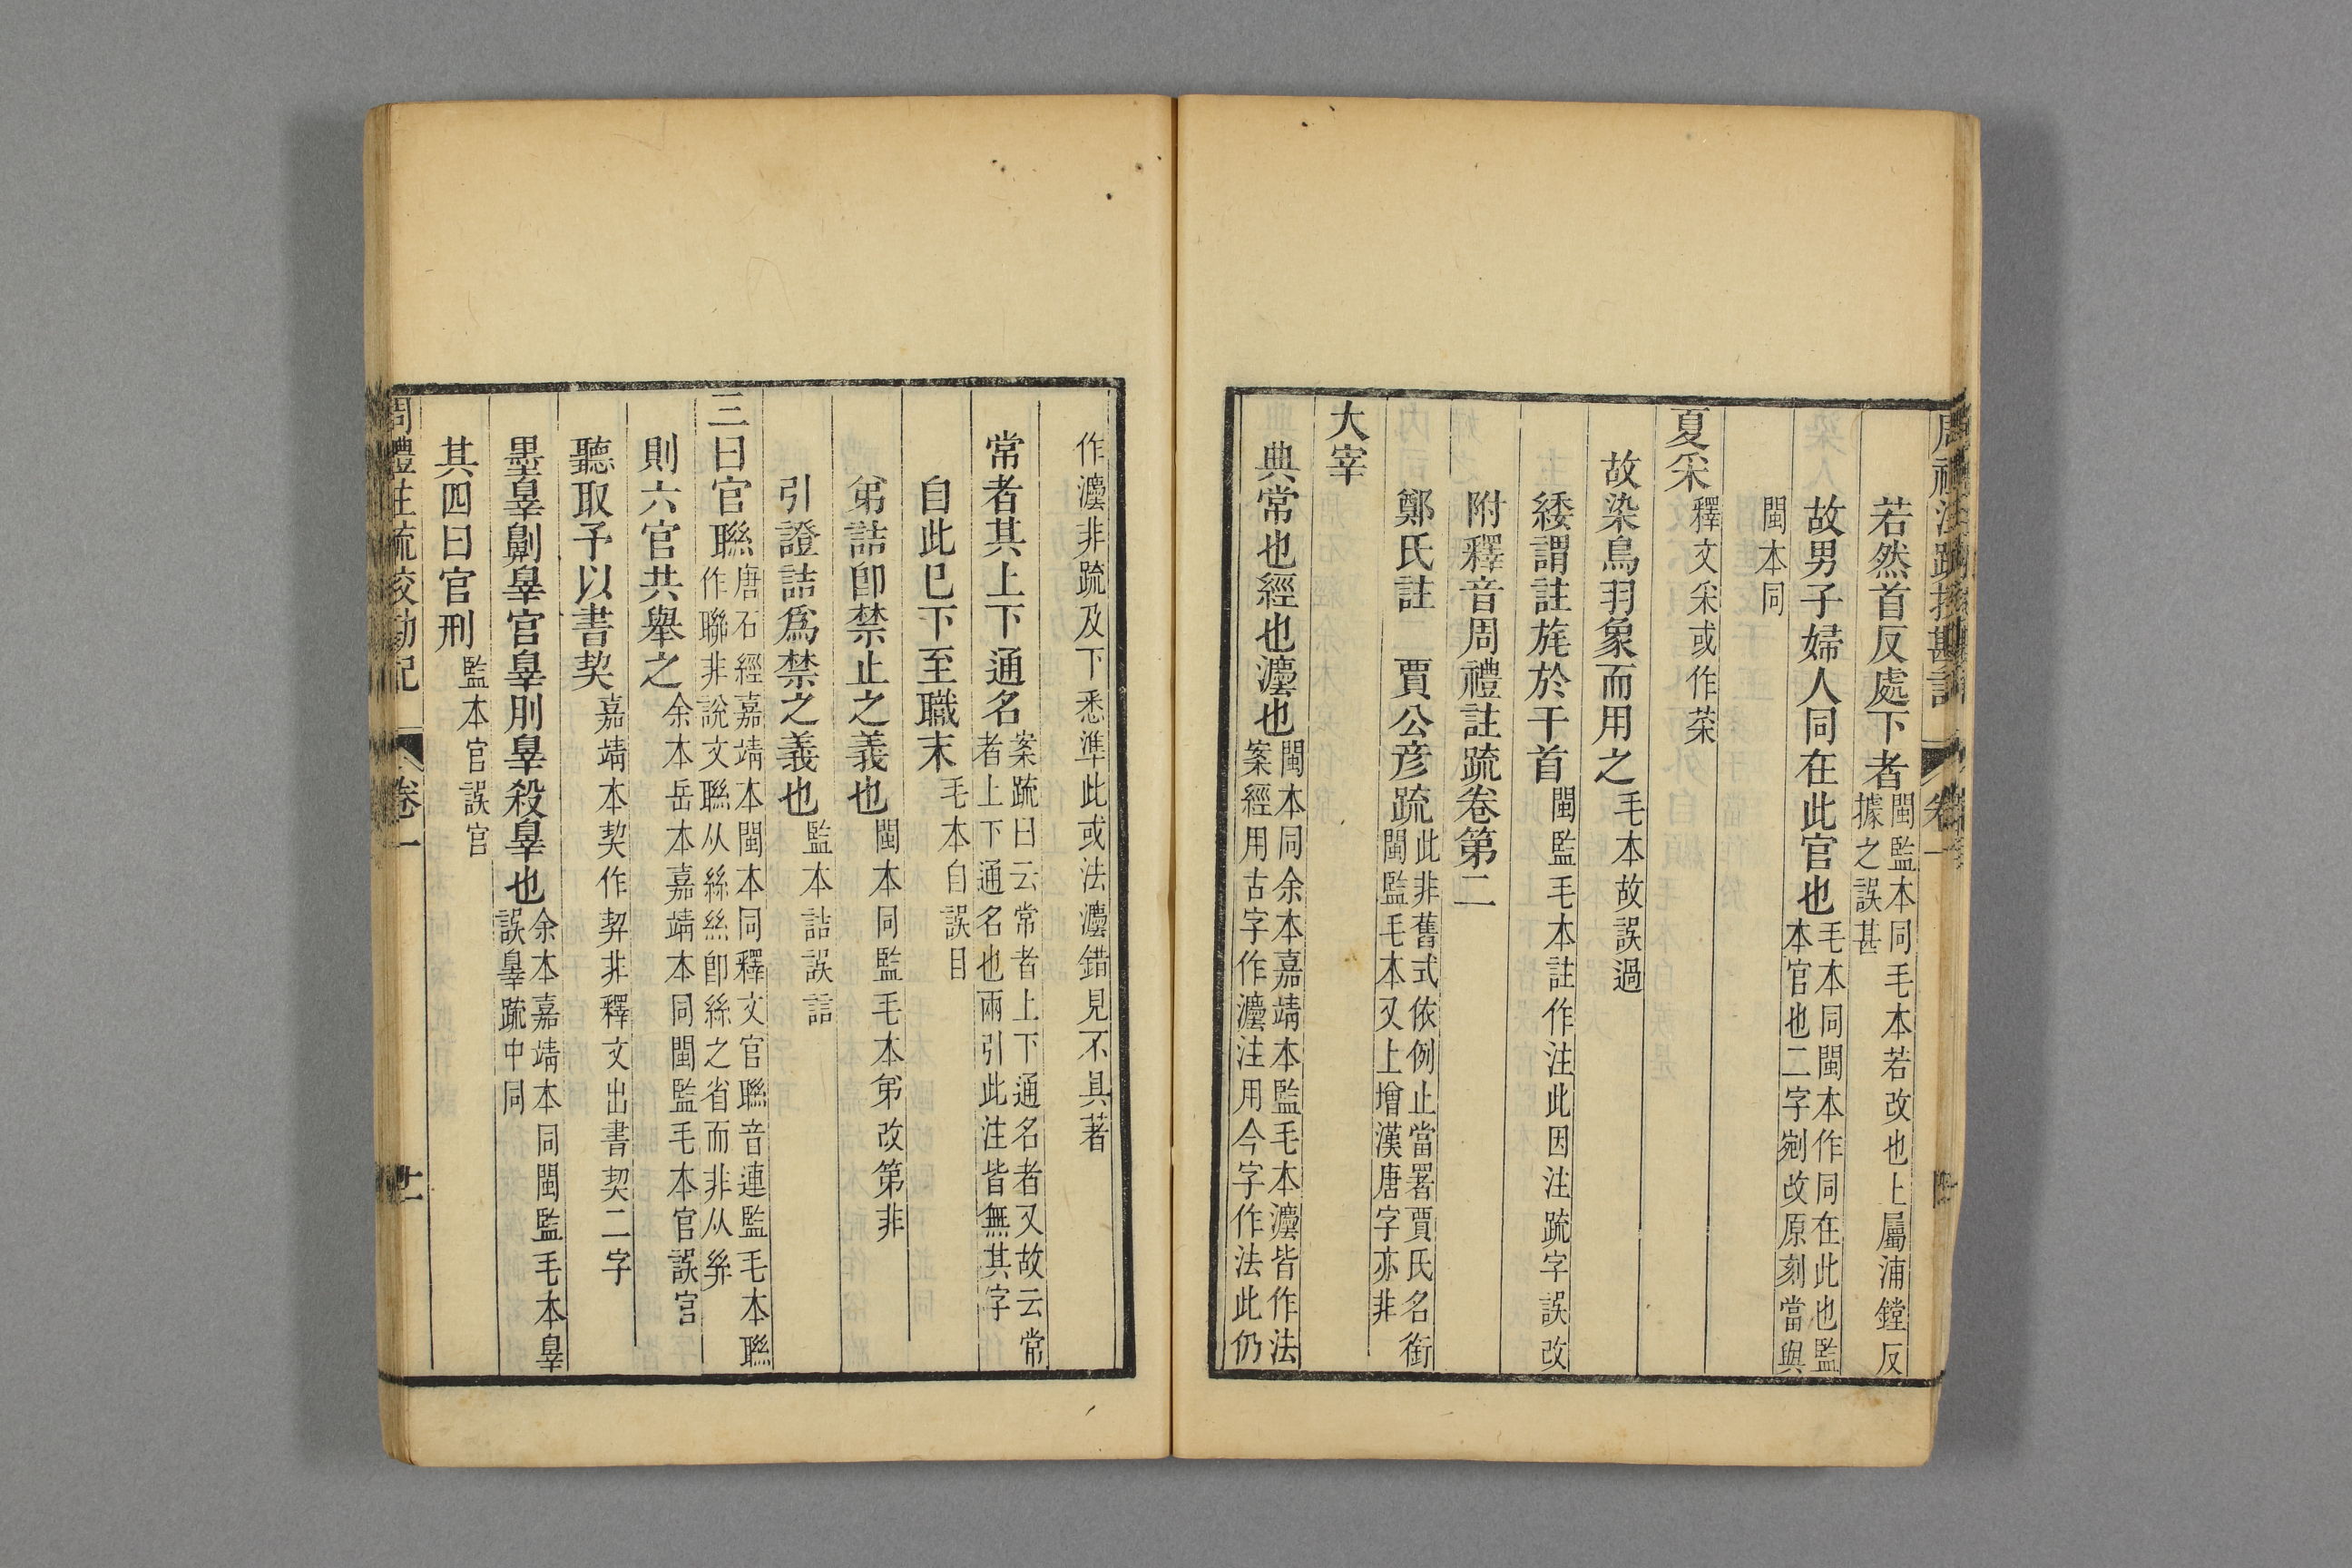 周禮注疏挍勘記 卷一
若然首反處下者閩監本同毛本若改也上屬浦鏜反
據之誤甚
故男子婦人同在此官也毛本同閩本作同在此也監
本官也二字剜改原刻當與
閩本同
夏采釋文采或作菜
故染鳥羽象而用之毛本故誤過
緌謂註旄於干首閩監毛本註作注此因注疏字誤改
附釋音周禮註疏卷第二
鄭氏註 賈公彦疏此非舊式依例止當署賈氏名銜
閩監毛本又上增漢唐字亦非
大宰
典常也經也灋也閩本同余本嘉靖本監毛本灋皆作法
案經用古字作灋注用今字作法此仍
作灋非疏及下悉準此或法灋錯見不具著
常者其上下通名案疏曰云常者上下通名者又故云常
者上下通名也兩引此注皆無其字
自此已下至職末毛本自誤目
弟詰卽禁止之義也閩本同監毛本弟改第非
引證詰爲禁之義也監本詰誤詁
三曰官聯唐石經嘉靖本閩本同釋文官聯音連監毛本聯
作聯非說文聯从絲絲卽絲之省而非从𢇇
則六官共舉之余本岳本嘉靖本同閩監毛本官誤宮
聽取予以書契嘉靖本契作挈非釋文出書契二字
墨辠劓辠宮辠刖辠殺辠也余本嘉靖本同閩監毛本辠
誤辠疏中同
其四曰官刑監本官誤宮
周禮注疏校勘記 卷一 廿